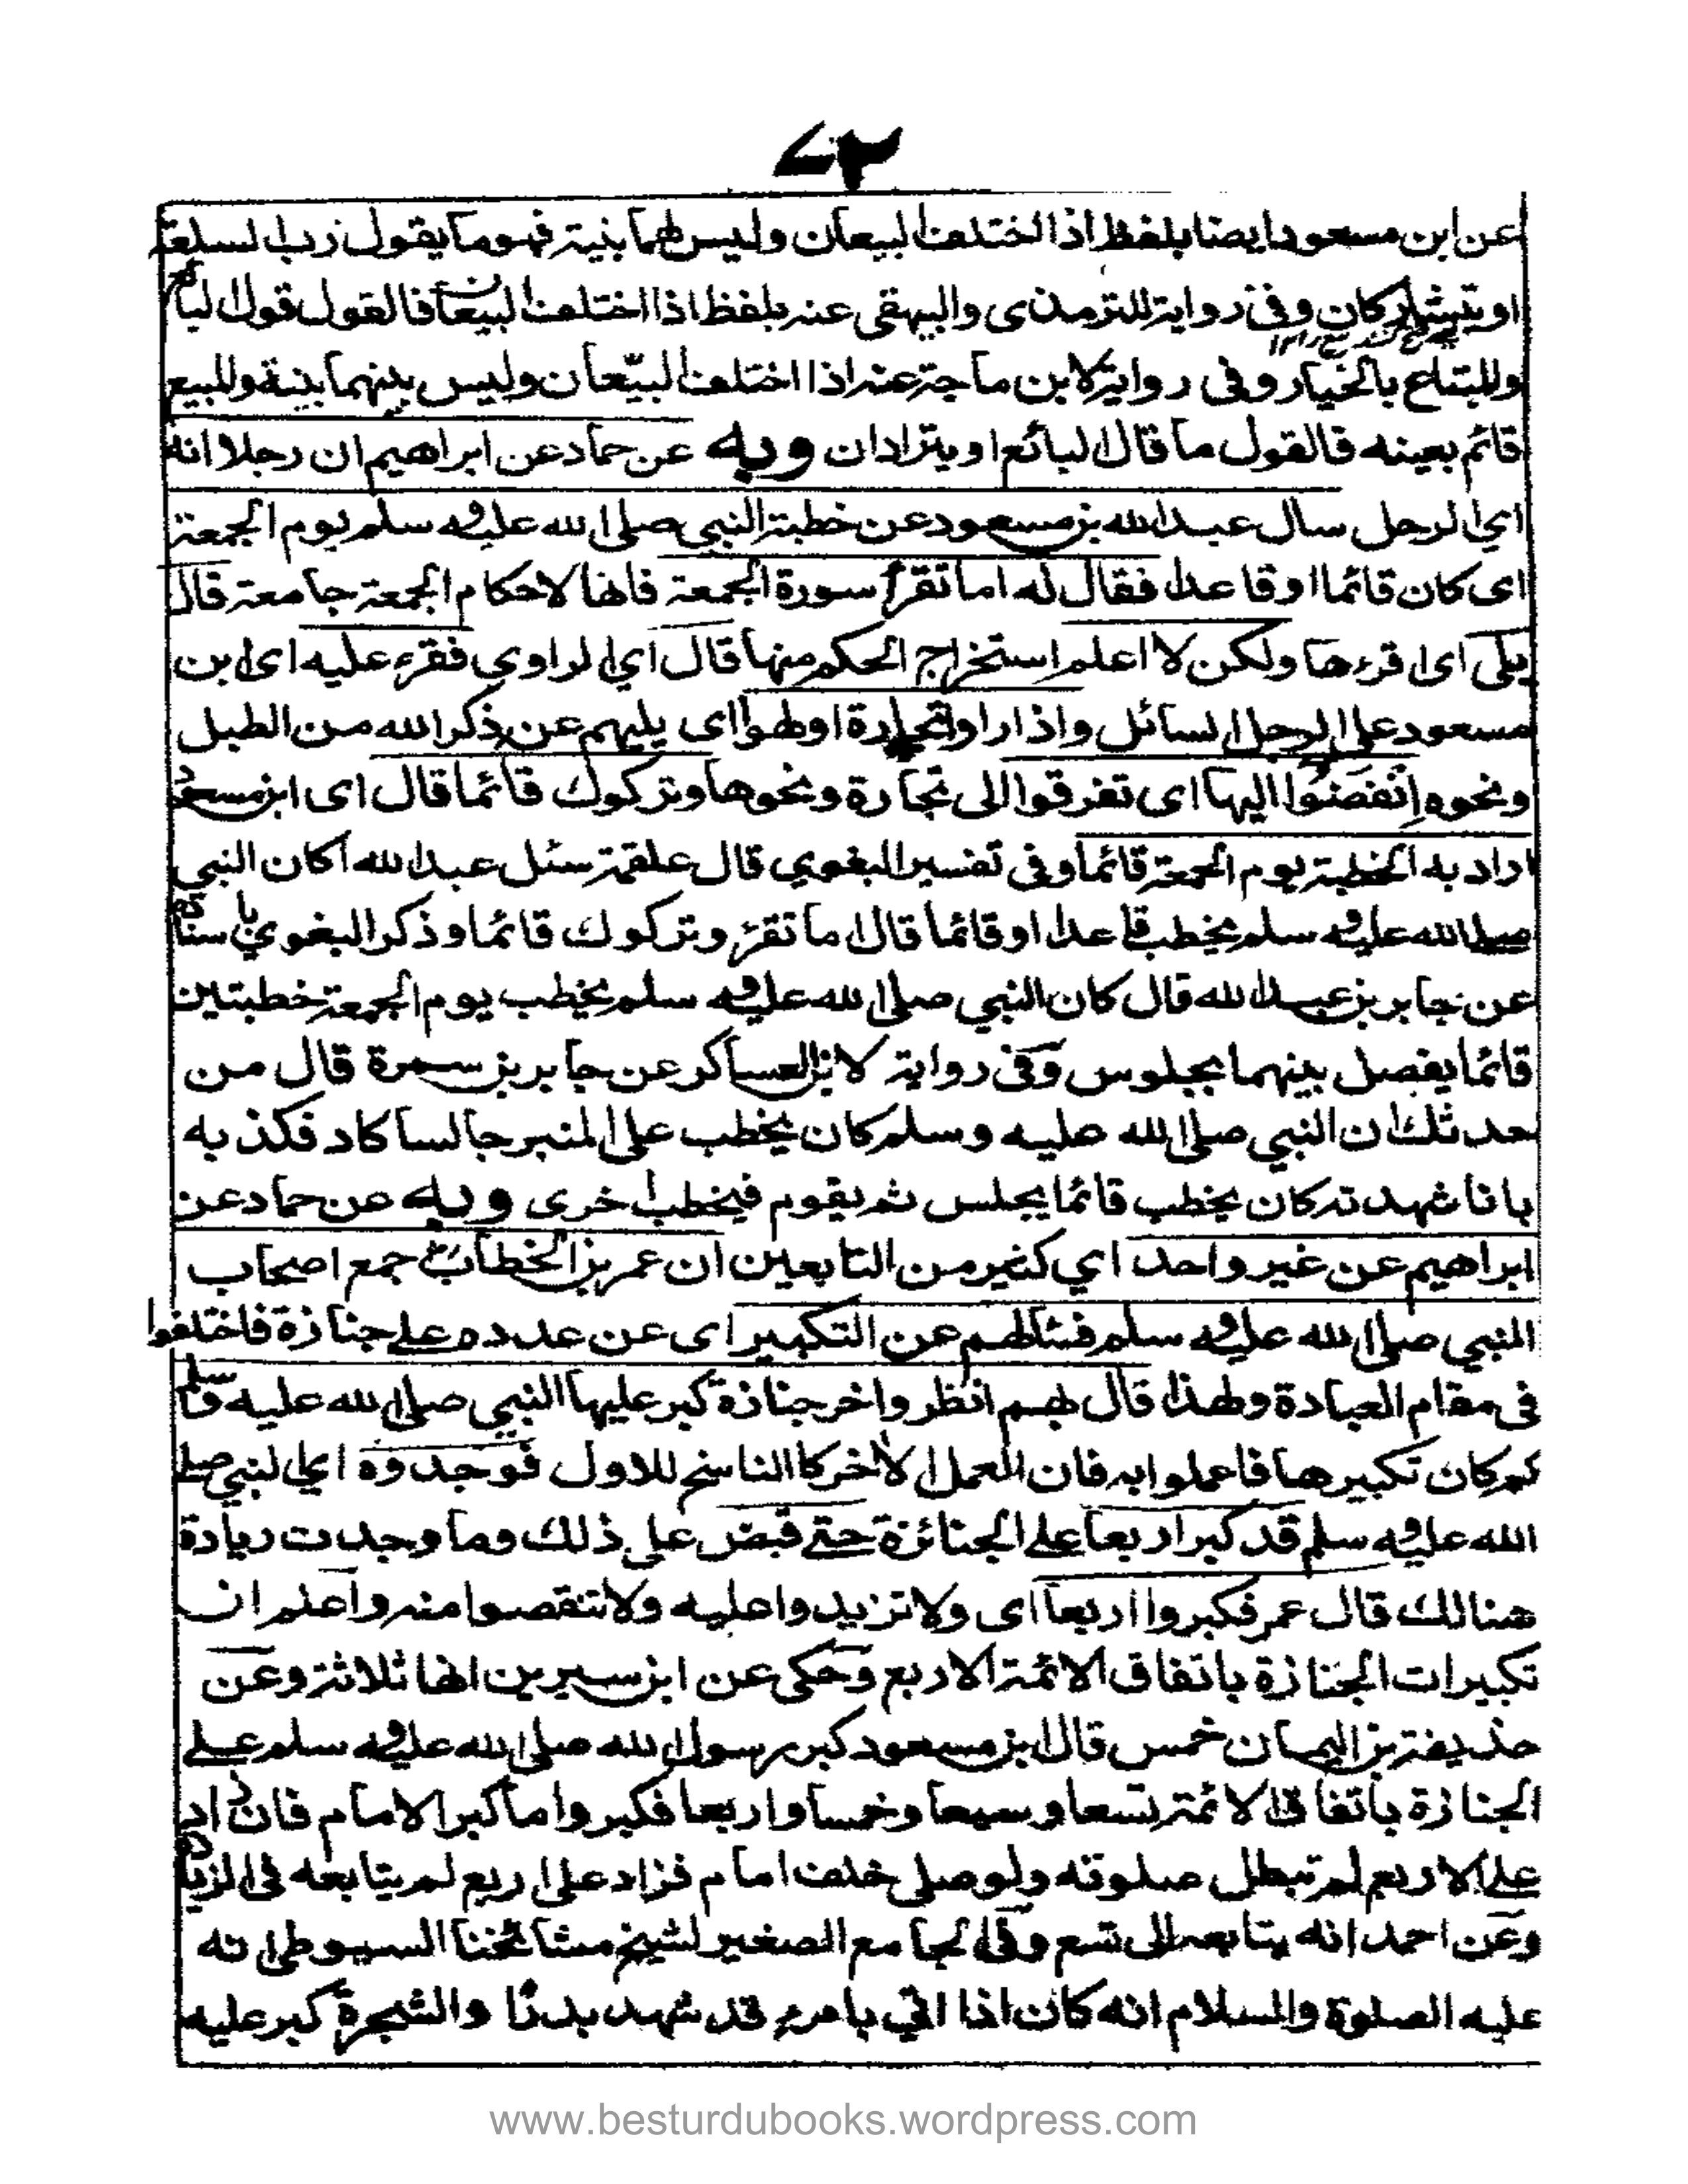 ٧٢
عن ابن مسعود ايضا بلفظ اذا اختلف البيعان وليس لهما بنية فهو ما يقول رب السلعة
او يتتاركان وفى رواية للترمذى والبيهقى عنه بلفظ اذا اختلف البيعان فالقول قول البائع
وللبتاع بالخيار وفى رواية لابن ماجة عنه اذا اختلف البيّعان وليس بينهما بنية وللبيع
قائم بعينه فالقول ما قال البائع او يترادان وبه عن حماد عن ابراهيم ان رجلا انه
اى الرجل سال عبد الله بن مسعود عن خطبة النبي صلى الله عليه وسلم يوم الجمعة
اى كان قائما او قاعدا فقال له اما تقرأ سورة الجمعة فانها لاحكام الجمعة جامعة قال
بلى اى اقرءها ولكن لا اعلم استخراج الحكم منها قال اي الراوي فقرء عليه اى ابن
مسعود على الرجل السائل واذا راوا تجارة او لهوا اى يلهيهم عن ذكر الله من الطبل
ونحوه اِنْفَضُّوا اليها اى تفرقوا الى تجارة ونحوها وتركوك قائما قال اى ابن مسعود
اراد به الخطبة يوم الجمعة قائما وفى تفسير البغوي قال علقمة سئل عبد الله أكان النبي
صلى الله عليه وسلم يخطب قاعدا او قائما قال اما تقرء وتركوك قائما وذكر البغوي باسناده
عن جابر بن عبد الله قال كان النبي صلى الله عليه وسلم يخطب يوم الجمعة خطبتين
قائما يفصل بينهما بجلوس وفى رواية لابن العساكر عن جابر بن سمرة قال من
حدثك ان النبي صلى الله عليه وسلم كان يخطب على المنبر جالسا كاد فكذبه
بانا شهدته كان يخطب قائما يجلس ثم يقوم فيخطب اخرى وبه عن حماد عن
ابراهيم عن غير واحد اي كثير من التابعين ان عمر بن الخطاب جمع اصحاب
النبي صلى الله عليه وسلم فسئلهم عن التكبير اى عن عدده على جنازة فاختلفوا
فى مقام العبادة ولهذا قال لهم انظروا اخر جنازة كبر عليها النبي صلى الله عليه وسلم
كم كان تكبيرها فاعملوا به فان العمل الاخر كالناسخ للاول فوجدوه اى النبي صلى
الله عليه وسلم قد كبر اربعا على الجنائزة حتى قبض على ذلك وما وجدت زيادة
هنالك قال عمر فكبروا اربعا اى ولا تزيدوا عليه ولا تنقصوا منه واعلم ان
تكبيرات الجنازة باتفاق الائمة الاربع وحكى عن ابن سيرين انها ثلاثة وعن
حذيفة بن اليمان خمس قال ابن مسعود كبر رسول الله صلى الله عليه وسلم على
الجنازة باتفاق الائمة تسعا وسبعا وخمسا واربعا فكبروا ما كبر الامام فان زاد
على الاربع لم تبطل صلوته ولو صلى خلف امام فزاد على اربع لم يتابعه فى الزيادة
وعن احمد انه يتابعه الى تسع وفى الجامع الصغير لشيخ مشائخنا السيوطى انه
عليه الصلوة والسلام انه كان اذا اتي بامرء قد شهد بدرًا والشجرة كبر عليه
www.besturdubooks.wordpress.com